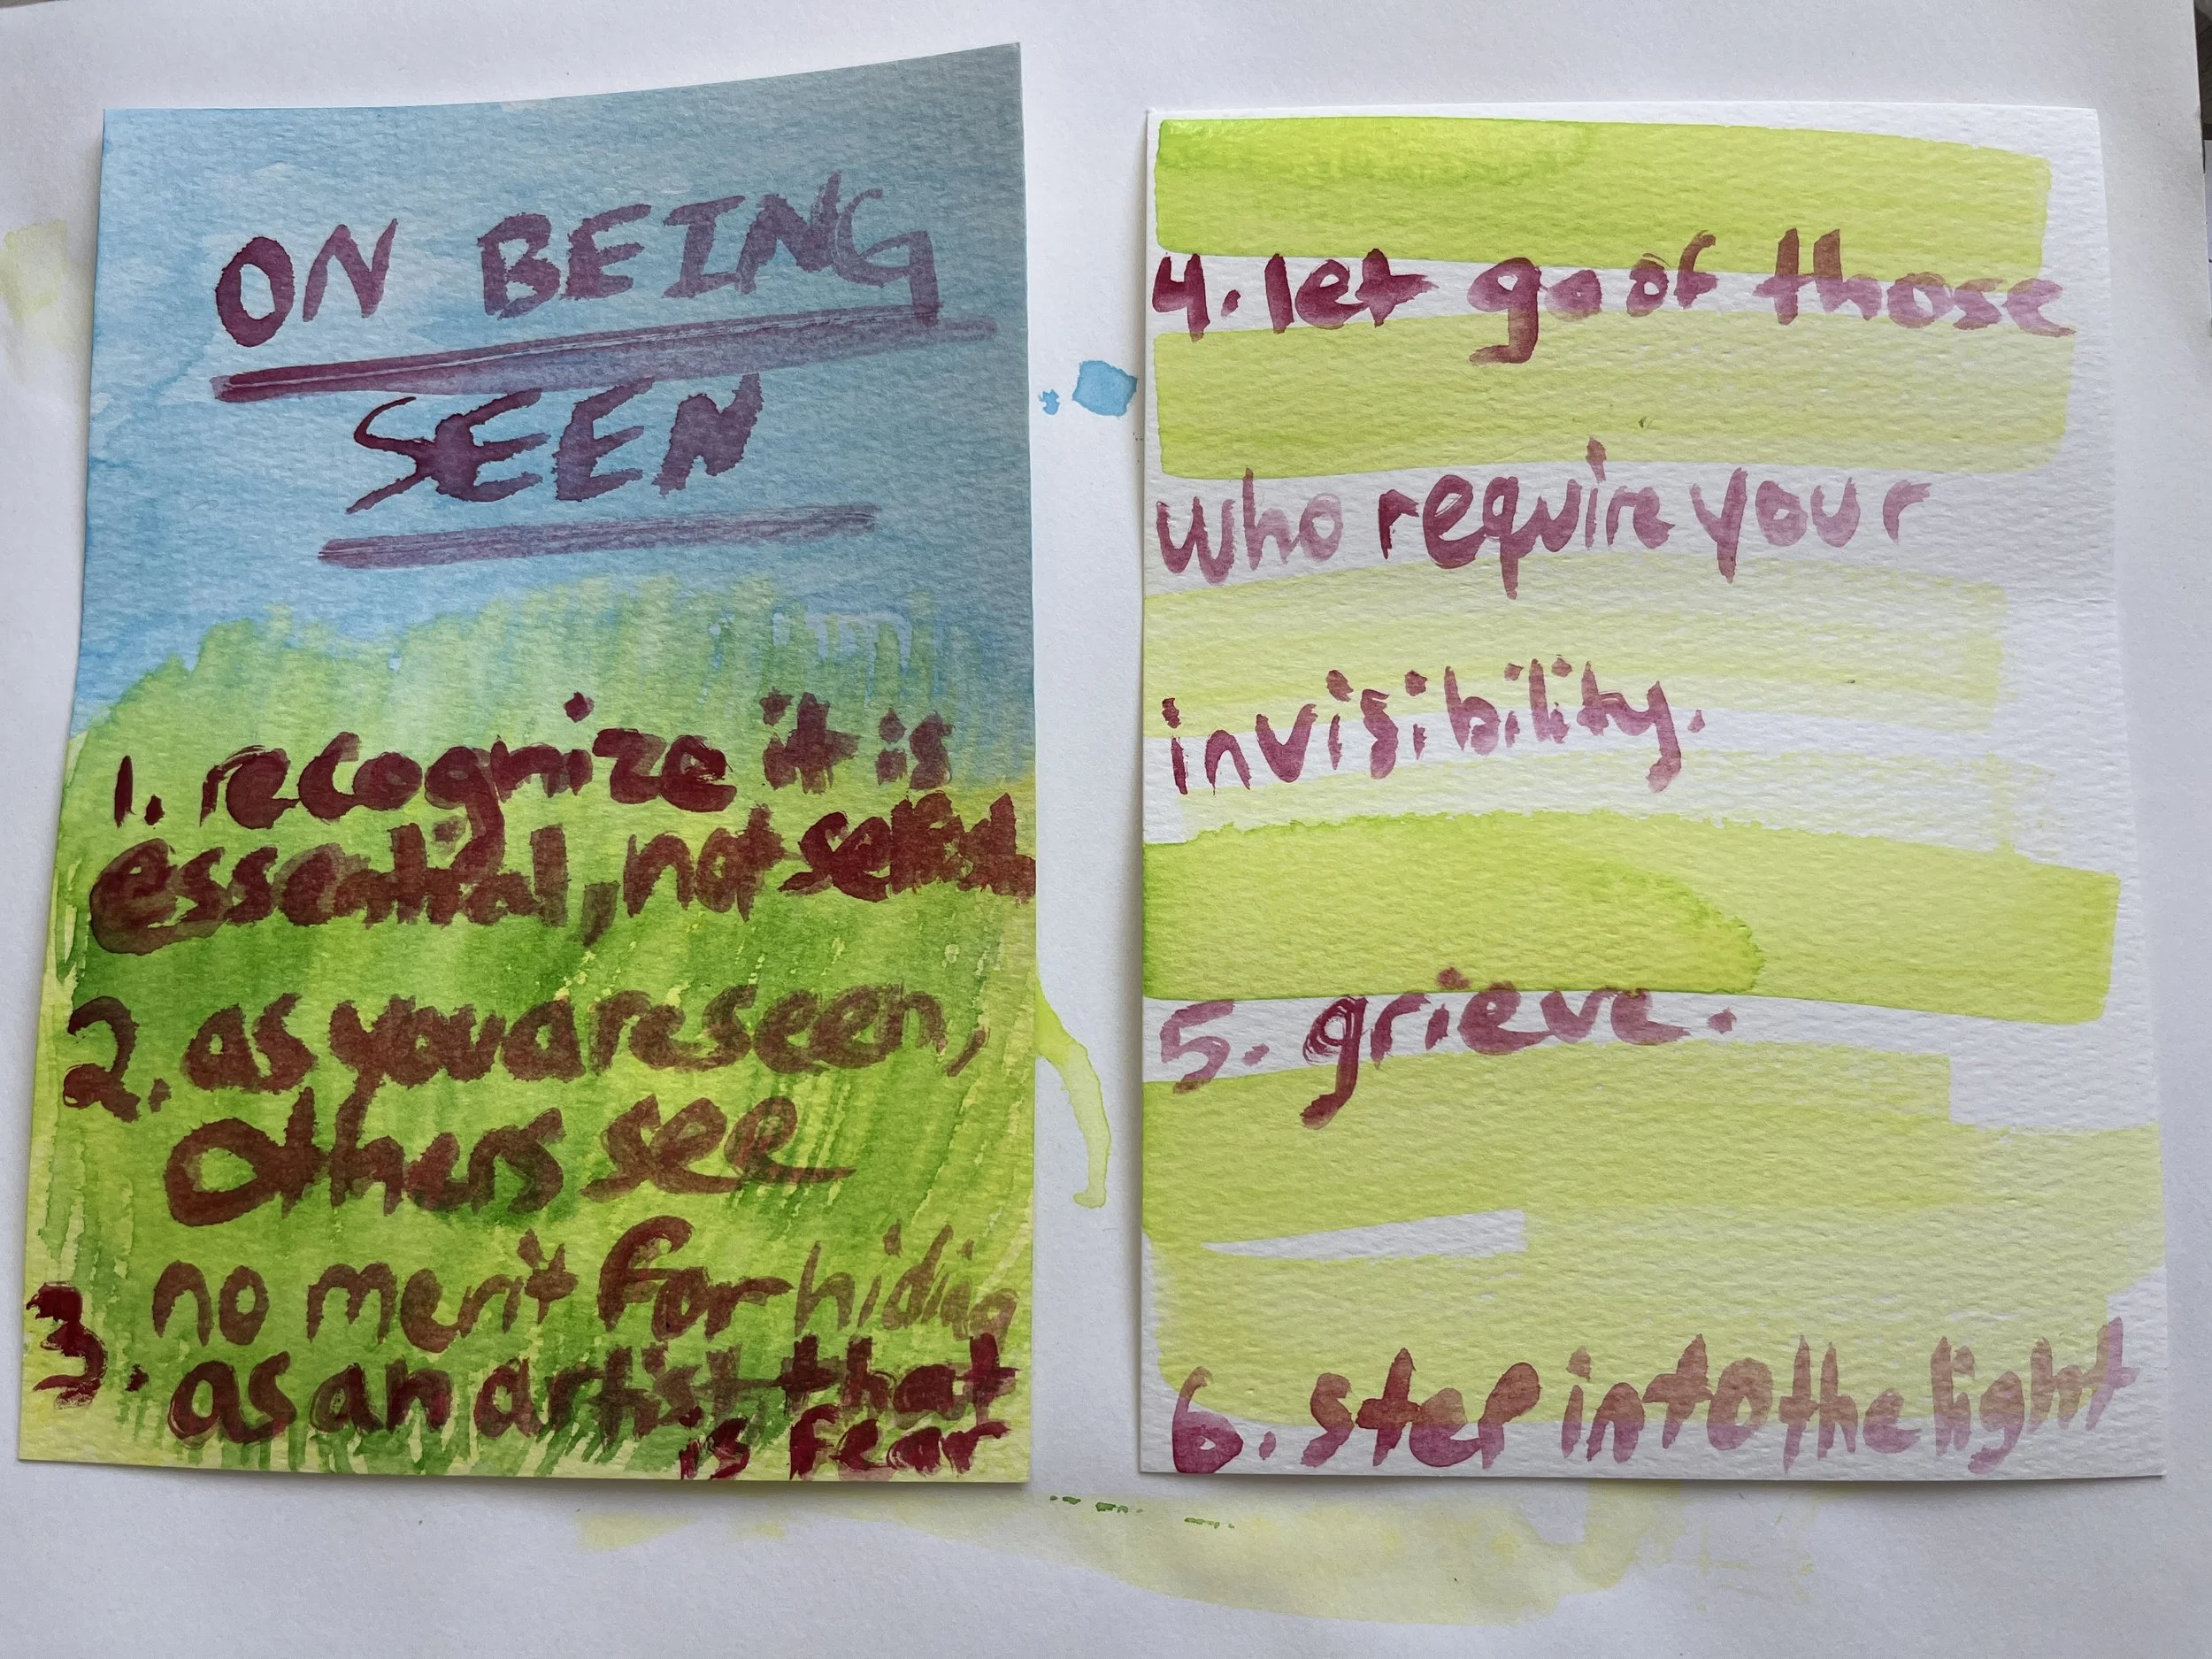 ON BEING
SEEN
1. recognize it is
essential, not selfish
2. as you are seen,
others see
3. no merit for hiding
as an artist, that
is fear
4. let go of those
who require your
invisibility.
5. grieve.
6. step into the light